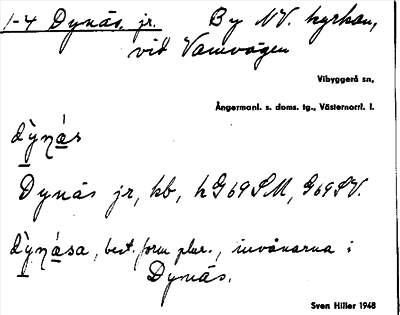 1-4 Dynäs, jr. By NV. kyrkan,
vid Vamvägen
Vibyggerå sn,
Ångermanl. s. doms. tg., Västernorrl. l.
dỳnás
Dynäs jr, kb, hG69SM, G69SV.
dỳnása, best. form plur., invånarna i
Dynäs.
Sven Hiller 1948